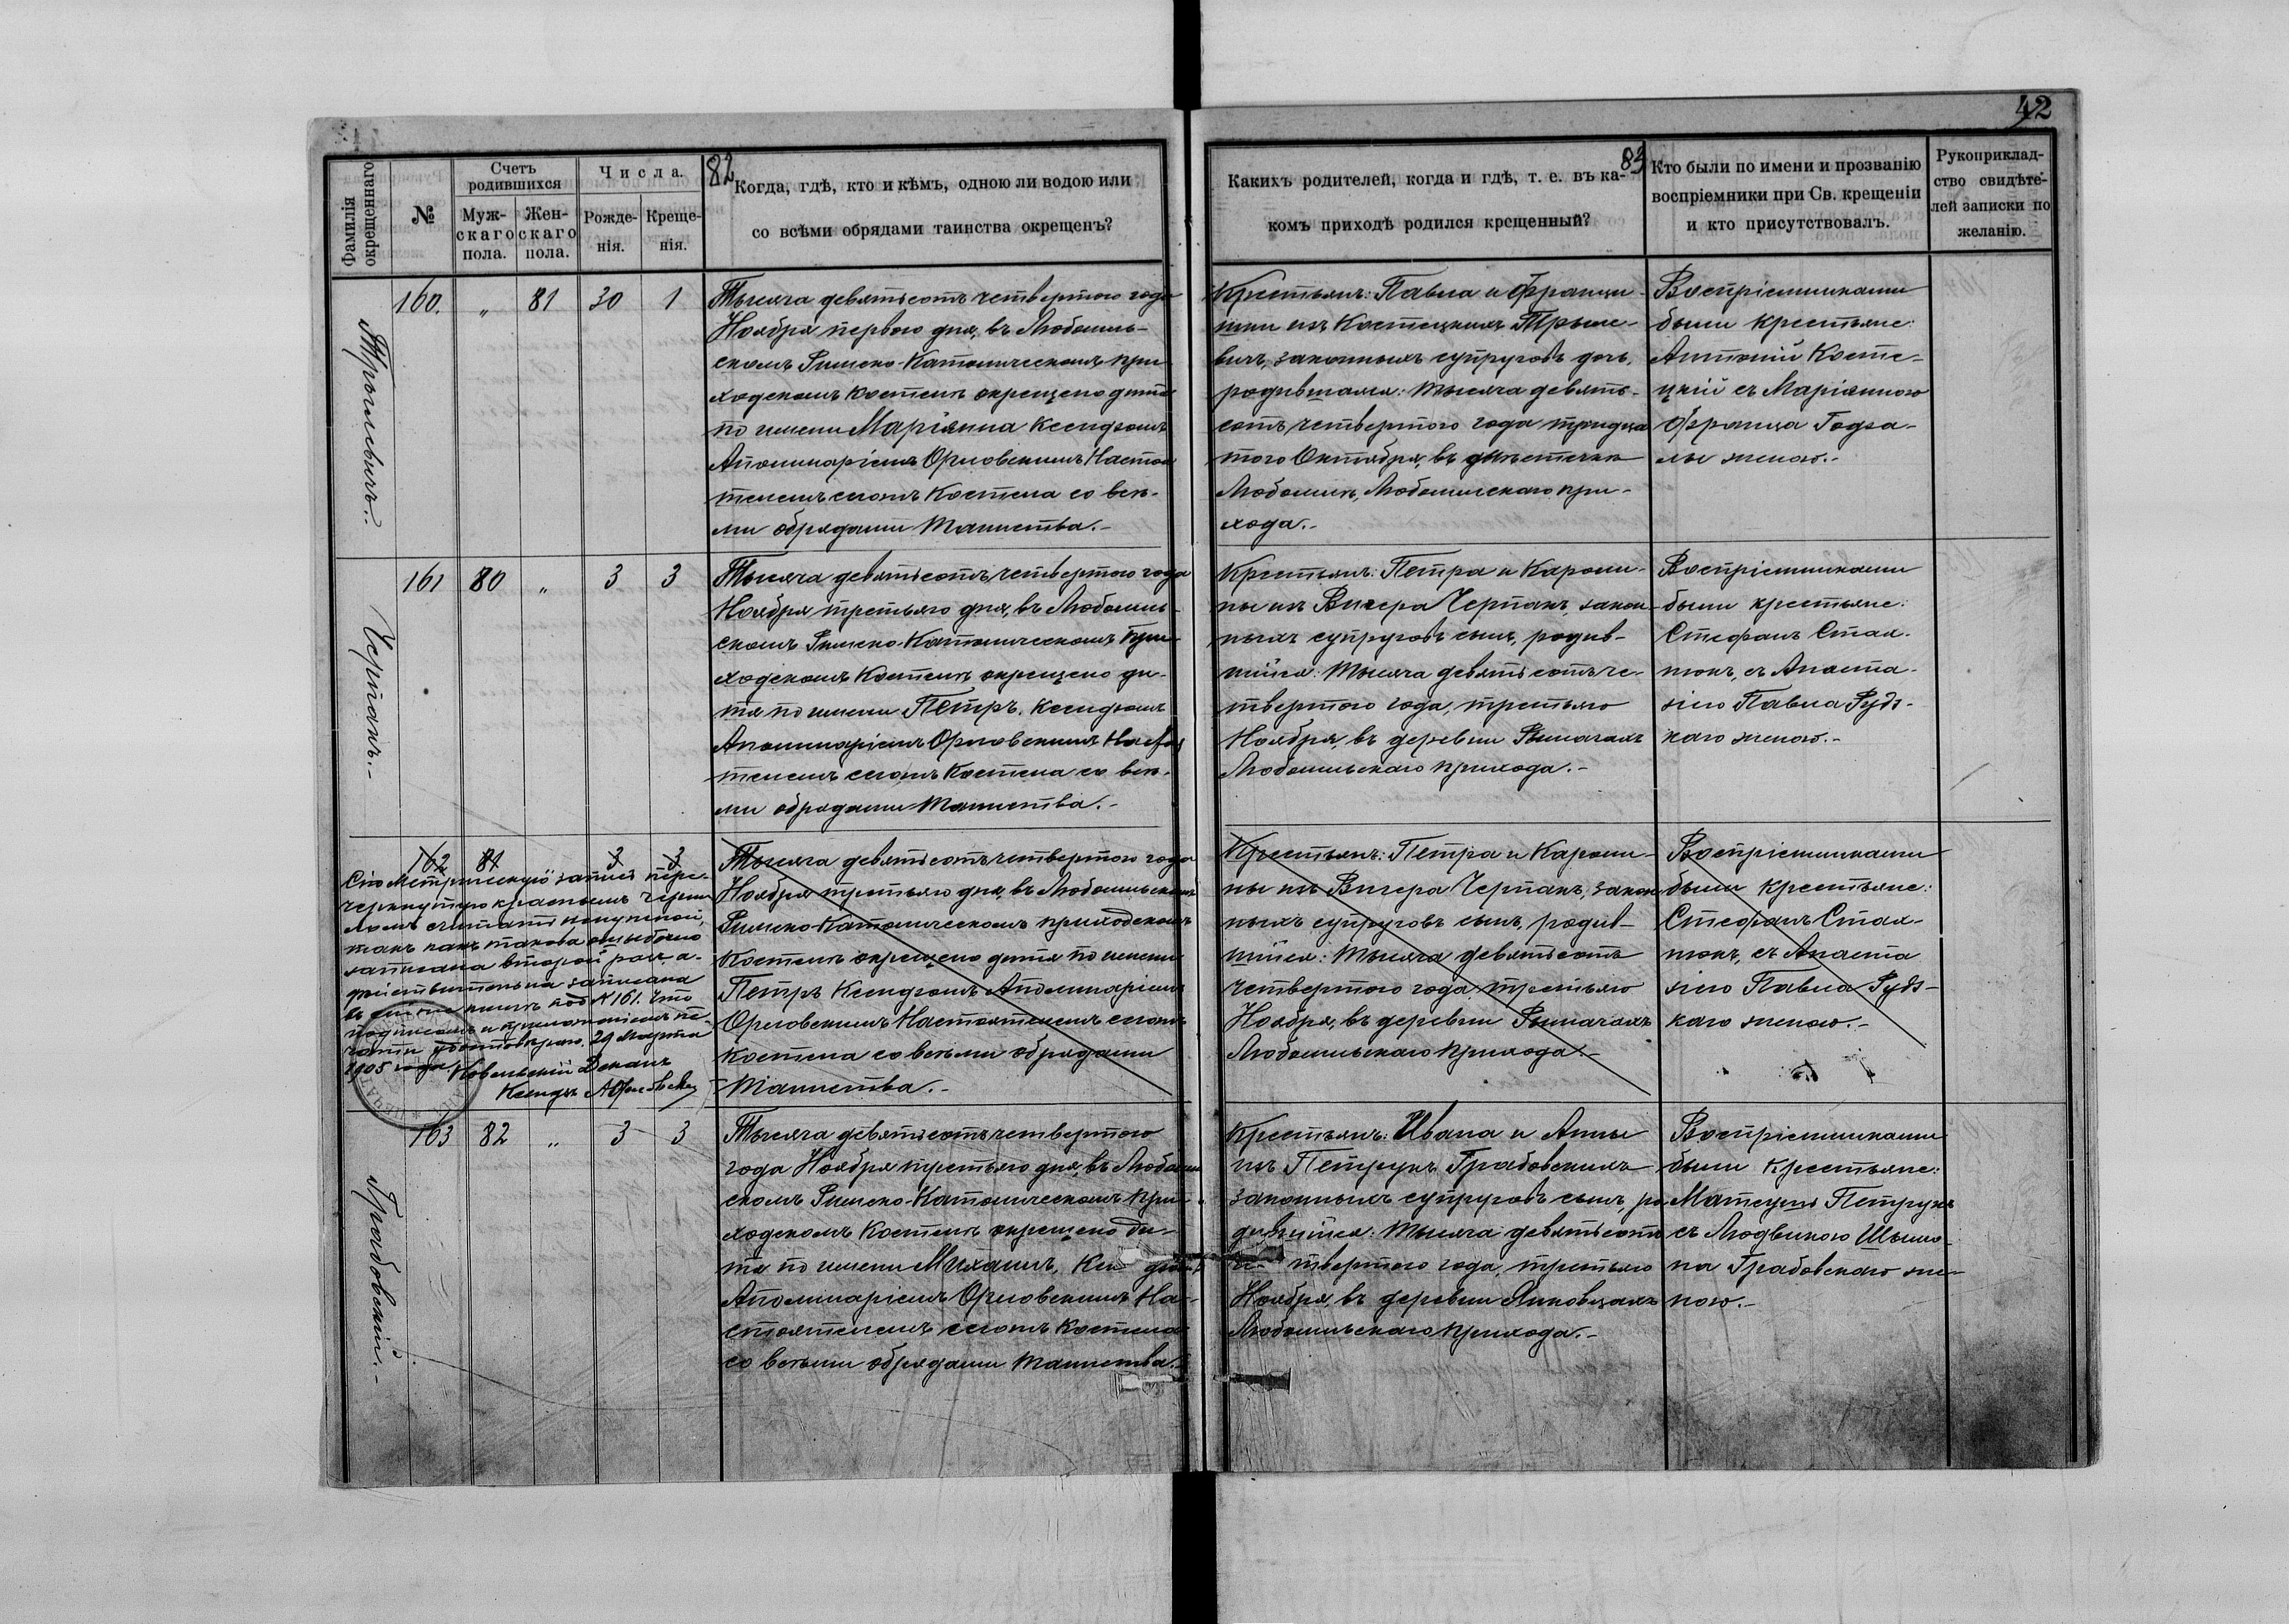 42
82
83
Фамилія окрещеннаго
№
Счетъ родившихся
Мужскаго пола.
Женскаго пола.
Числа.
Рожденія.
Крещенія.
Когда, гдѣ, кто и кѣмъ, одною ли водою или
со всѣми обрядами таинства окрещенъ?
Какихъ родителей, когда и гдѣ, т. е. въ ка-
комъ приходѣ родился крещенный?
Кто были по имени и прозванію
воспріемники при Св. крещеніи
и кто присутствовалъ.
Рукоприклад-
ство свидѣте-
лей записки по
желанію.
160. „ 81 30 1
Тысяча девятьсотъ четвертого года
Ноября первого дня, въ Любомль-
скомъ Римско-Католическомъ при-
ходскомъ костелѣ окрещено дитя
по имени Маріянна Ксендзомъ
Аполинаріемъ Орловскимъ Настоя
телемъ сегожъ Костела со всѣ-
ми обрядами Таинства.-
Крестьянъ: Павла и Францы-
шки изъ Костецкихъ
законныхъ супруговъ дочь,
родившаяся: тысяча девять-
сотъ четвертого года тридца
того Октября, въ мѣстечкѣ
Любомлѣ, Любомльскаго при-
хода.-
Воспріемниками
были крестьяне:
Антоній Косте-
цкій съ Маріянною
Франца
женою.-
161 80 „ 3 3
Черпакъ.-
Тысяча девятьсотъ четвертого года
Ноября третьяго дня, въ Любомль-
скомъ Римско-Католическомъ При-
ходскомъ Костелѣ окрещено ди-
тя по имени Петръ, Ксендзомъ
Аполинаріемъ Орловскимъ Настоя
телемъ сегожъ Костела со всѣ-
ми обрядами Таинства.-
Крестьянъ: Петра и Кароли-
ны изъ Вигера Черпакъ, закон-
ныхъ супруговъ сынъ, родив-
шійся: тысяча девятьсотъ че-
твертого года, третьяго
Ноября, въ деревни Рымачахъ
Любомльскаго прихода.-
Воспріемниками
были крестьяне:
Стефанъ Стах-
нюкъ, съ Анаста-
зіею Павла Рудз-
каго женою.-
162 81 3 3
Сію Метрическую запись пере-
черкнутую краснымъ черни
ломъ считать
такъ какъ такова ошибочно
записана второй разъ, а
дѣйствительна записана
въ сей же книгѣ под N 161. Что
подписомъ и приложеніемъ пе-
чати удостовѣряю. 29 Марта
1905 года. Ковельскій Деканъ
Ксендзъ А Орловскій
Тысяча девятьсотъ четвертого года
Ноября третьяго дня, въ Любомльскомъ
Римско-Католическомъ приходскомъ
Костелѣ окрещено дитя по имени
Петръ Ксендзомъ Аполинаріемъ
Орловскимъ Настоятелемъ сегожъ
Костела со всѣми обрядами
Таинства.-
Крестьянъ: Петра и Кароли-
ны изъ Вигера Черпакъ, закон
ныхъ супруговъ сынъ, родив-
шійся: тысяча девятьсотъ
четвертого года, третьяго
Ноября, въ деревни Рымачахъ
Любомльскаго прихода.-
Воспріемниками
были крестьяне:
Стефанъ Стах-
нюкъ, съ Анаста
зіею Павла Рудз-
каго женою.-
163 82 „ 3 3
Грабовскій.-
Тысяча девятьсотъ четвертого
года Ноября третьяго дня, въ Любомль
скомъ Римско-Католическомъ При-
ходскомъ Костелѣ окрещено ди-
тя по имени Михаилъ, Ксендзомъ
Аполинаріемъ Орловскимъ На-
стоятелемъ сегожъ Костела
со всѣми обрядами таинства.-
Крестьянъ: Ивана и Анны
изъ Петрукъ Грабовскихъ
законныхъ супруговъ сынъ, ро
дившійся: тысяча девятьсотъ
че твертого года, третьяго
Ноября, въ деревни
Любомльскаго прихода.-
Воспріемниками
были Крестьяне:
Матеушъ Петрукъ
съ Людвикою Шымо-
на Грабовскаго же-
ною.-